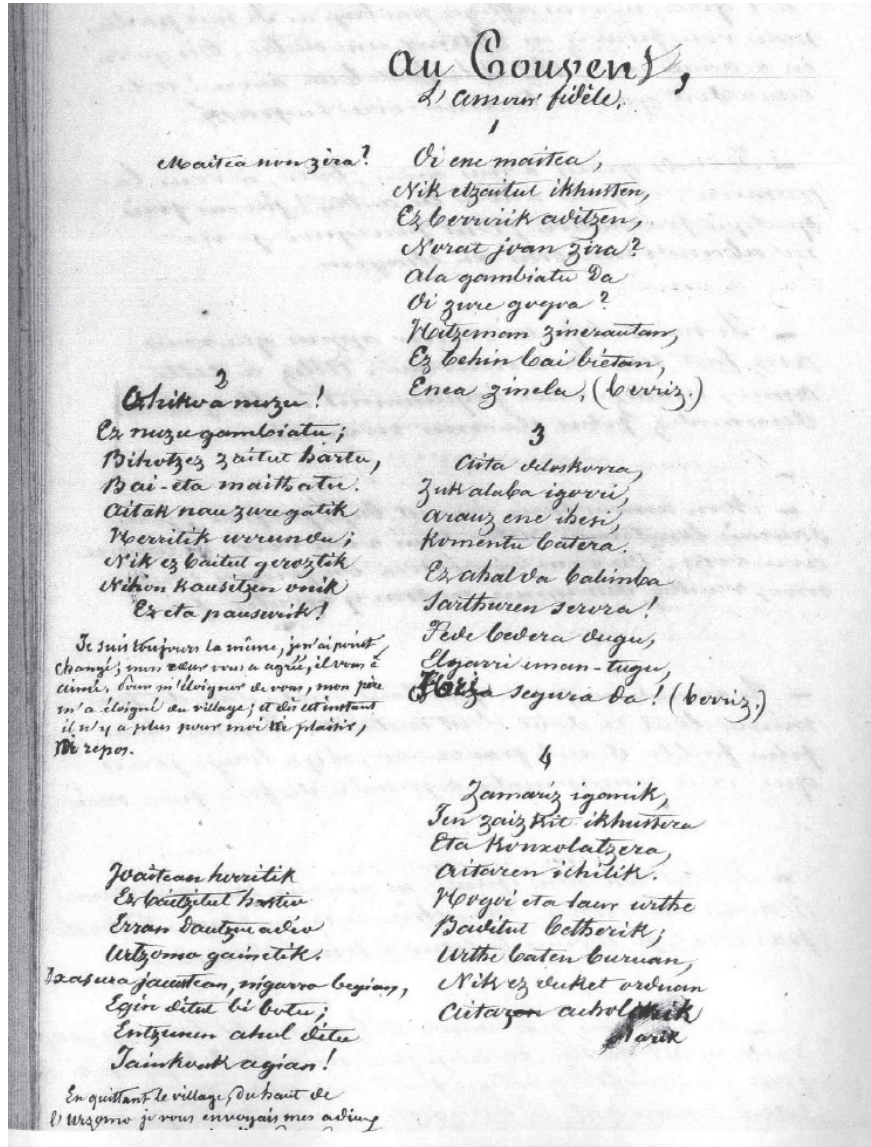 Au Couvent,
L'amour fidèle.
1
Maitea non zira?
Oi ene maitea,
Nik etzaitut ikhusten,
Ez berririk aditzen,
Norat joan zira?
Ala gambiatu da
Oi zure gogoa?
Hitzeman zinerautan,
Ez behin bai bietan,
Enea zinela, (berriz.)
2
Ez nuzu gambiatu;
Bihotzez zaitut hartu,
Bai-eta maithatu.
Aitak nau zure gatik
Herritik urrundu;
Nik ez baitut geroztik
Nihon kausitzen onik
Ez eta pausurik!
Je suis toujours la même, je n'ai point
changé; mon cœur vous a agréé, il vous a
aimé. Pour m'éloigner de vous, mon père
m'a éloigné du village; et dès cet instant
il n'y a plus pour moi ni plaisir,
ni repos.
3
Aita
Zuk alaba igorri,
Arauz ene ihesi,
Komentu batera.
Ez ahal da balimba
Sarthuren serora!
Fede bedera dugu,
Elgarri eman-tugu,
segura da! (berriz.)
4
Zamariz iganik,
Jin zaizkit ikhustera
Eta konsolatzera,
Aitaren ichilik.
Hogoi eta laur urthe
Baditut betherik;
Urthe baten buruan,
Nik ez duket orduan
Aitaren acholarik
Joaitean herritik
Ez baitzitut hastio
Erran dautzut adio
Urtzomo gainetik.
jaustean, nigarra begian,
Egin ditut bi botu;
Entzunen ahal ditu
Jainkoak agian!
En quittant le village, du haut de
l'Urzomo je vous envoyais mes adieux